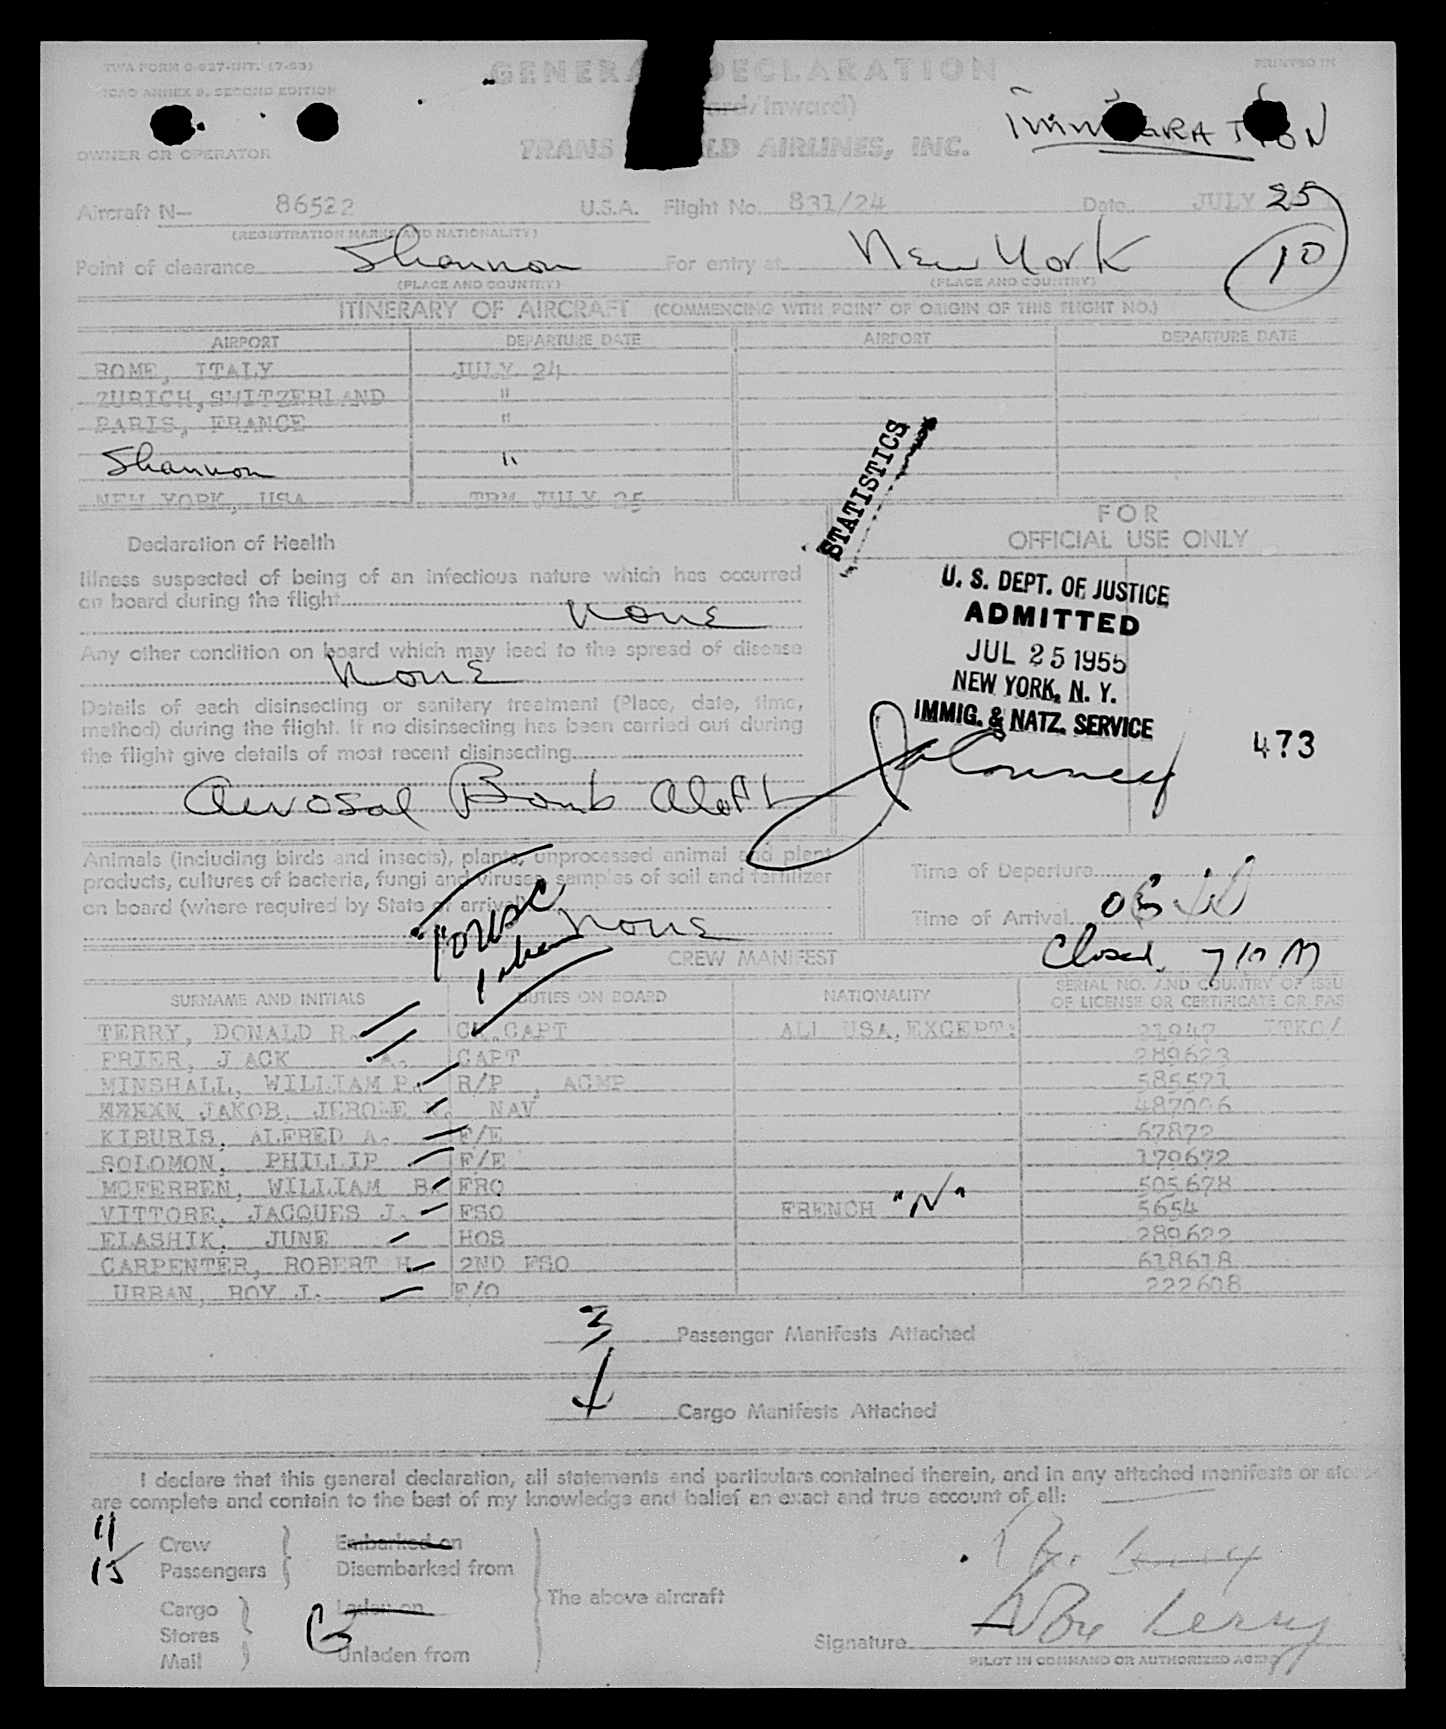 TWA FORM O-927-INT. (7-53)
ICAO ANNEX 9, SECOND EDITION
PRINTED IN
DECLARATION
IMMIGRATION
OWNER OR OPERATOR
TRANS AIRLINES, INC.
Aircraft N— 86522 U.S.A. Flight No. 831/24 Date JULY 25
(REGISTRATION MARKS AND NATIONALITY)
10
Point of clearance Shannon For entry at New York
(PLACE AND COUNTRY) (PLACE AND COUNTRY)
ITINERARY OF AIRCRAFT (COMMENCING WITH POINT OF ORIGIN OF THIS FLIGHT NO.)
AIRPORT DEPARTURE DATE AIRPORT DEPARTURE DATE
ROME, ITALY JULY 24
ZURICH, SWITZERLAND "
PARIS, FRANCE "
Shannon "
NEW YORK, USA TRM JULY 25
STATISTICS
FOR
OFFICIAL USE ONLY
Declaration of Health
Illness suspected of being of an infectious nature which has occurred
on board during the flight
None
Any other condition on board which may lead to the spread of disease
None
U. S. DEPT. OF JUSTICE
ADMITTED
JUL 25 1955
NEW YORK, N. Y.
IMMIG. & NATZ. SERVICE
473
Details of each disinsecting or sanitary treatment (Place, date, time,
method) during the flight. If no disinsecting has been carried out during
the flight give details of most recent disinsecting
Aerosol Bomb Aloft
Animals (including birds and insects), plants, unprocessed animal and plant
products, cultures of bacteria, fungi and viruses, samples of soil and fertilizer
on board (where required by State of arrival)
None
Time of Departure
Time of Arrival
Closed
CREW MANIFEST
SURNAME AND INITIALS DUTIES ON BOARD NATIONALITY SERIAL NO. AND COUNTRY OF ISSU
OF LICENSE OR CERTIFICATE OR PAS
TERRY, DONALD R. CK.CAPT ALL USA, EXCEPT: 21947
PRIER, JACK A. CAPT 289623
MINSHALL, WILLIAM P. R/P , ACMP 585571
JAKOB, JEROME NAV 487006
KIBURIS, ALFRED A. F/E 67872
SOLOMON, PHILLIP F/E 179672
MCFERREN, WILLIAM B. FRO 505678
VITTORE, JACQUES J. FSO FRENCH "N" 5654
ELASHIK, JUNE HOS 289622
CARPENTER, ROBERT H. 2ND FSO 618618
URBAN, ROY J. F/O 222608
3 Passenger Manifests Attached
Cargo Manifests Attached
I declare that this general declaration, all statements and particulars contained therein, and in any attached manifests or stor
are complete and contain to the best of my knowledge and belief an exact and true account of all:
11 Crew Embarked on
15 Passengers Disembarked from
The above aircraft
Cargo Laden on
Stores
Mail Unladen from
Signature
PILOT IN COMMAND OR AUTHORIZED AGENT